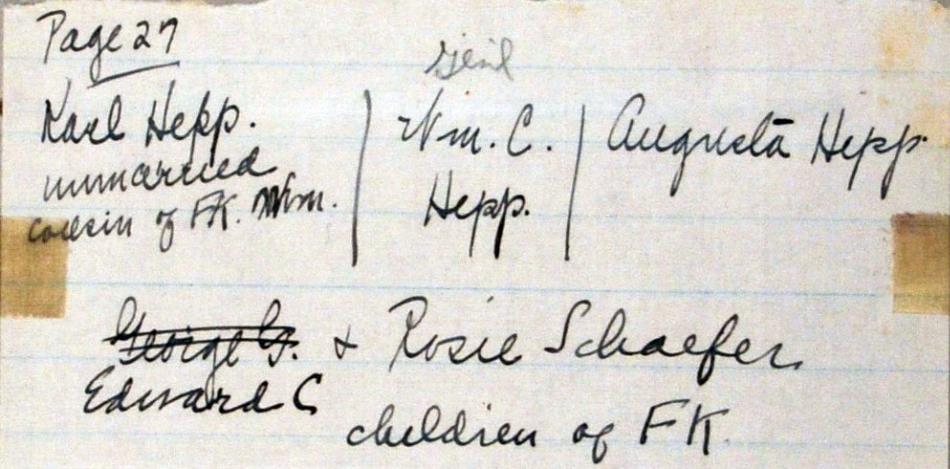 Page 27
Karl Hepp.
unmarried
cousin of FK. Wm.
Wm. C.
Hepp.
Augusta Hepp.
George G. & Rosie Schaefer.
Edward C
children of FK.